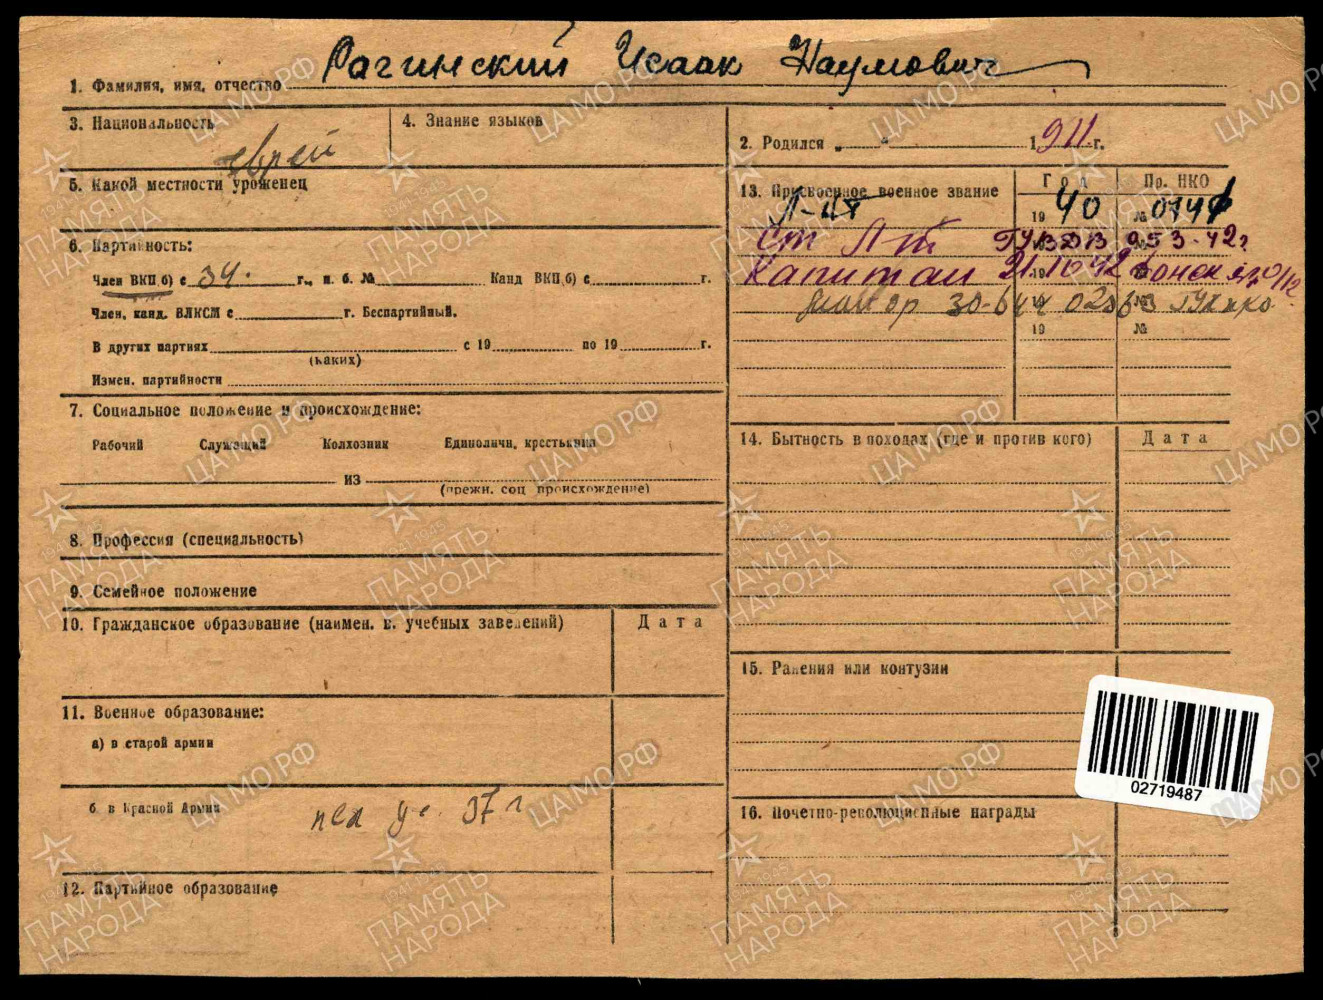 1. Фамилия, имя, отчество Рагинский Исаак Наумович
3. Национальность еврей
4. Знание языков
5. Какой местности уроженец
6. Партийность:
Член ВКП(б) с 34. г., п. б. № Канд ВКП(б) с г.
Член, канд. ВЛКСМ с г. Беспартийный.
В других партиях с 19 по 19 г.
(каких)
Измен. партийности
7. Социальное положение и происхождение:
Рабочий Служащий Колхозник Единоличн. крестьянин
из
(прежн. соц происхождение)
8. Профессия (специальность)
9. Семейное положение
10. Гражданское образование (наимен. в. учебных заведений) Дата
11. Военное образование:
а) в старой армии
б. в Красной Армии пех уч. 37 г
12. Партийное образование
2. Родился „ “ 1911 г.
13. Присвоенное военное звание Год Пр. НКО
Л-нт 19 40 №
ст Л-т 953-42г
Капитан 21.10.42
майор 30-6 44 ГУК НКО
19 №
14. Бытность в походах (где и против кого) Дата
15. Ранения или контузии
02719487
16. Почетно-революционные награды
ЦАМО.РФ
1941-1945
ПАМЯТЬ
НАРОДА